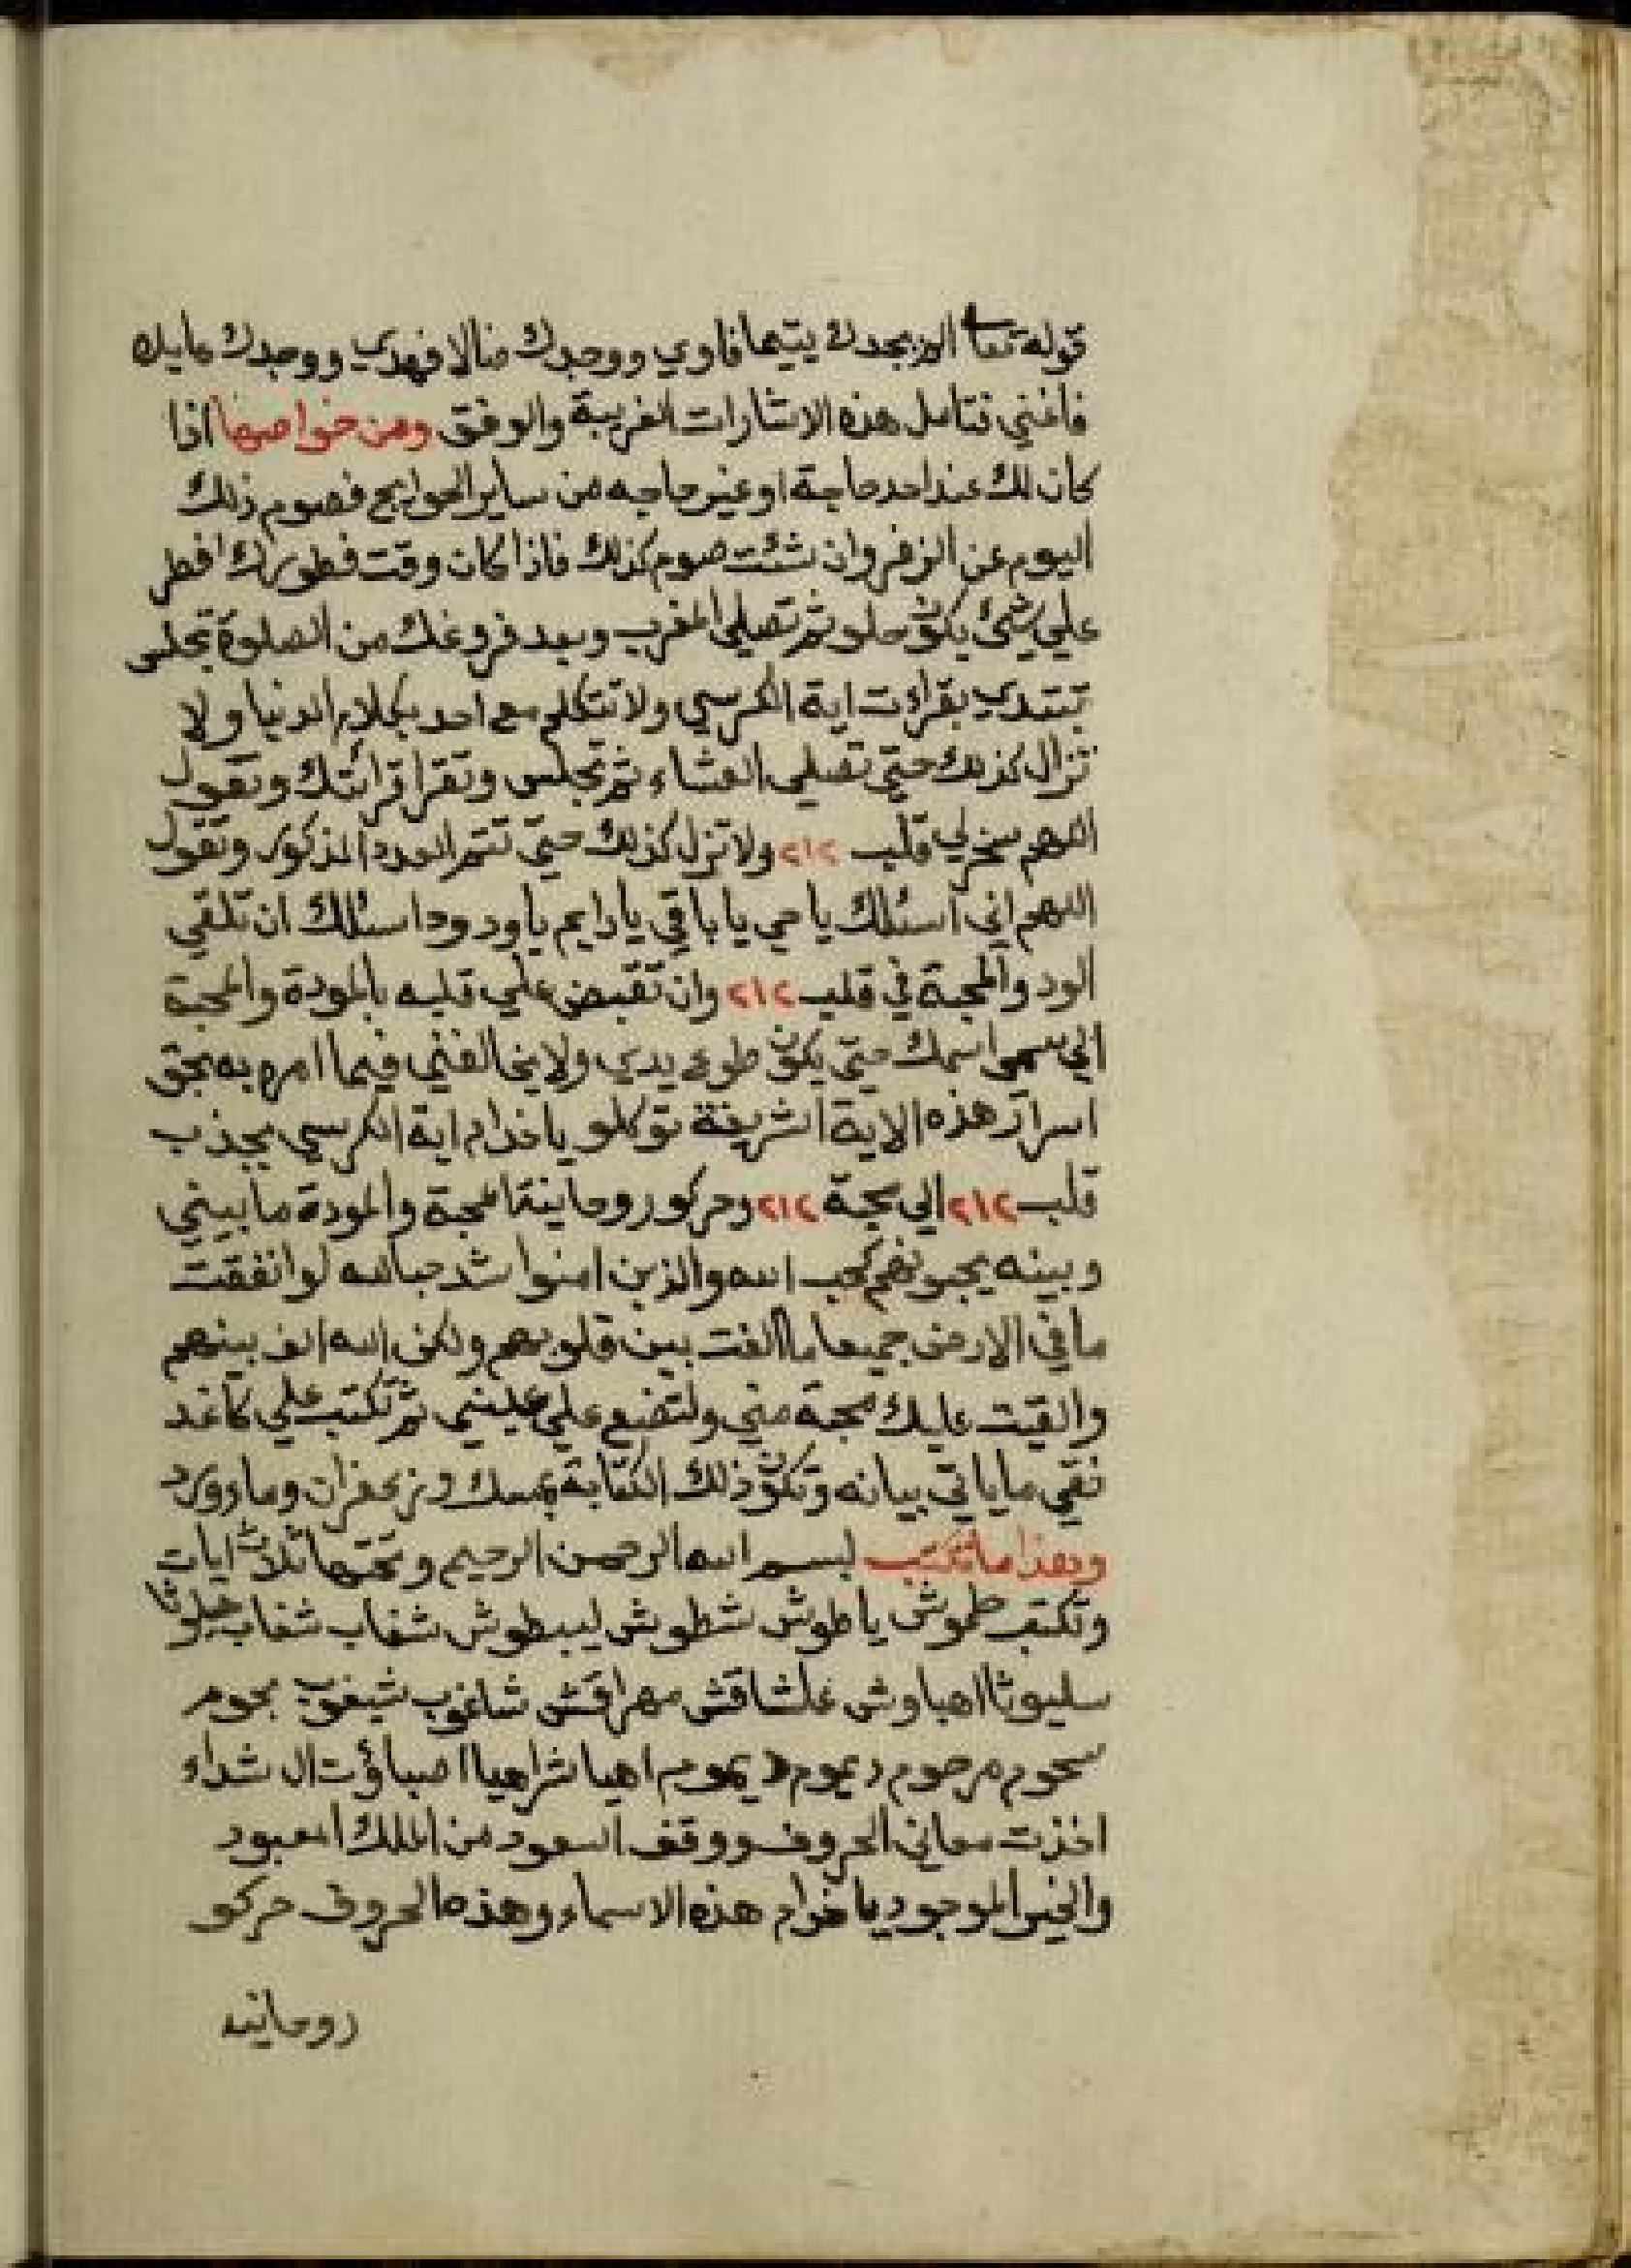 قوله تعا الم يجدك يتيما فاوي ووجدك ضالا فهدي ووجدك عايلا
فاغني فتامل هذه الاشارات الغريبة والوفق ومن خواصها اذا
كان لك عند احد حاجة او غير حاجه من ساير الحوايج فصوم ذلك
اليوم عن الزفر وان شئت صوم كذلك فاذا كان وقت فطورك افطر
علي شئ يكون حلو ثم تصلي المغرب وبعد فروغك من الصلوة تجلس
تبتدي بقراءت اية الكرسي ولا تتكلم مع احد بكلام الدنيا ولا
تزال كذلك حتي تصلي العشاء ثم تجلس وتقرا قرائتك وتقول
اللهم سخر لي قلب ٢١٢ ولا تزل كذلك حتي تتم العدد المذكور وتقول
اللهم اني اسئلك يا حي يا باقي يا دايم يا ودود اسئلك ان تلقي
الود والمحبة في قلب ٢١٢ وان تقبض علي قلبه بالمودة والمحبة
الي اسمك حتي يكون طوع يدي ولا يخالفني فيما امره به بحق
اسرار هذه الاية الشريفة توكلو يا خدام اية الكرسي بجذب
قلب ٢١٢ الي محبة ٢١٢ وحركو روحانية المحبة والمودة ما بيني
وبينه يحبونهم كحب الله والذين امنوا اشد حبا لله لو انفقت
ما في الارض جميعا ما الفت بين قلوبهم ولكن الله الف بينهم
والقيت عليك محبة مني ولتصنع علي عيني ثم تكتب علي كاغد
نقي ما ياتي بيانه وتكون ذلك الكتابة بمسك وزعفران وماورد
وهذا ما تكتب بسم الله الرحمن الرحيم وتحتها ثلاث ايات
وتكتب طموش يا طوش شطوش ليبطوش شغاب شغاب
سليوثا اهباوش غلشاقش مهراقش شاغوب شيغوب بحوم
سحوم مرحوم ديموم ديموم اهيا شراهيا اصباؤت ال شداء
اخذت معاني الحروف ووقف السعود من الملك المعبود
والخير الموجود يا خدام هذه الاسماء وهذه الحروف حركو
روحانية